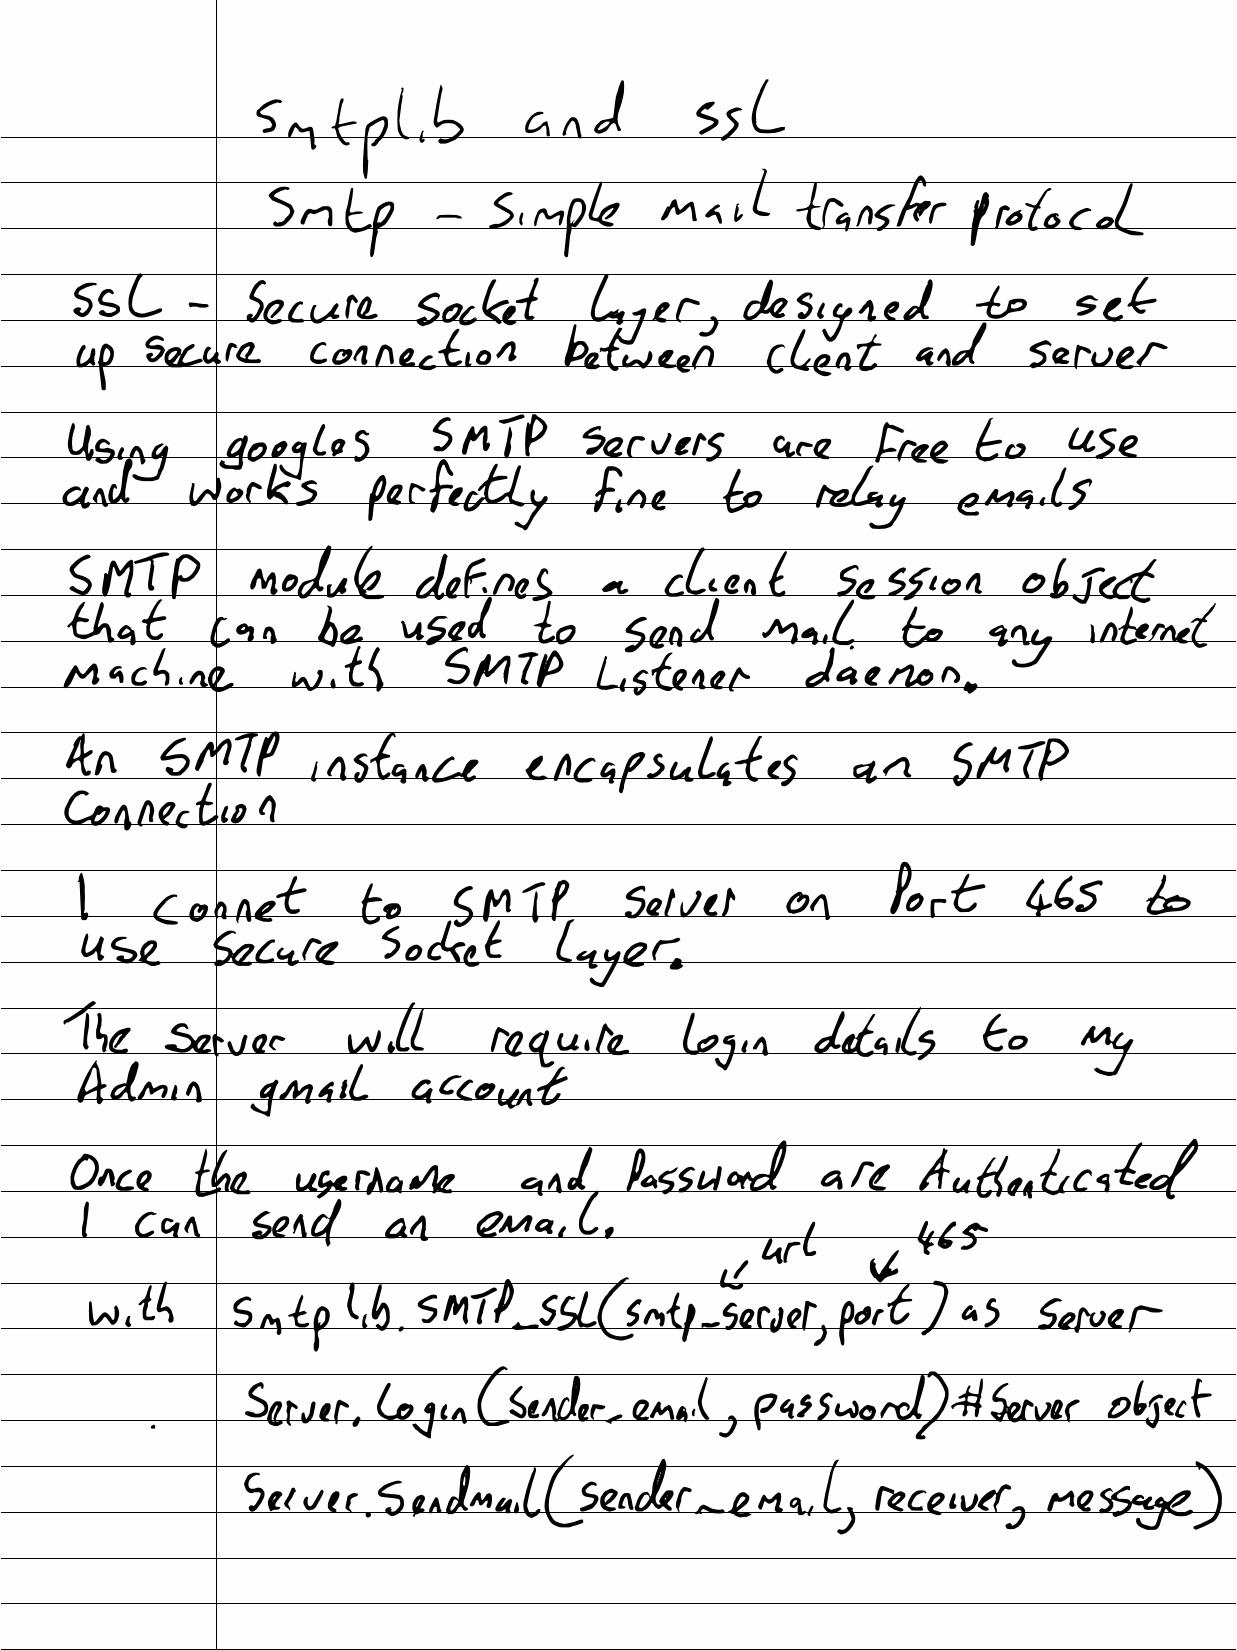 smtplib and ssl
Smtp - Simple mail transfer protocol
SSL - Secure socket layer, designed to set
up secure connection between client and server
Using googles SMTP servers are Free to use
and works perfectly fine to relay emails
SMTP module defines a client session object
that can be used to send mail to any internet
machine with SMTP Listener daemon.
An SMTP instance encapsulates an SMTP
Connection
I connet to SMTP server on Port 465 to
use Secure Socket layer.
The server will require login details to my
Admin gmail account
Once the username and Password are Authenticated
I can send an email.
url 465
with smtplib.SMTP_SSL(smtp_server, port) as server
Server.Login(Sender_email, password)#Server object
Server.Sendmail(sender_email, receiver, message)